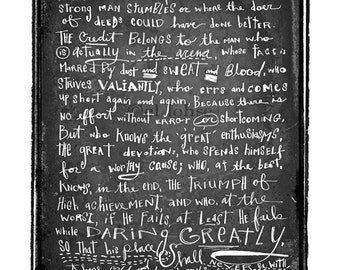 strong man stumbles or where the doer
of deeds could have done better.
The credit belongs to the man who
is actually in the arena, whose face is
marred by dust and sweat and blood, who
strives valiantly, who errs and comes
up short again and again, because there is
no effort without error or shortcoming,
But who knows the great enthusiasms,
the great devotions, who spends himself
for a worthy cause; who, at the best,
knows, in the end, the triumph of
high achievement, and who, at the
worst, if he fails, at least he fails
while daring greatly,
so that his place shall
never be with